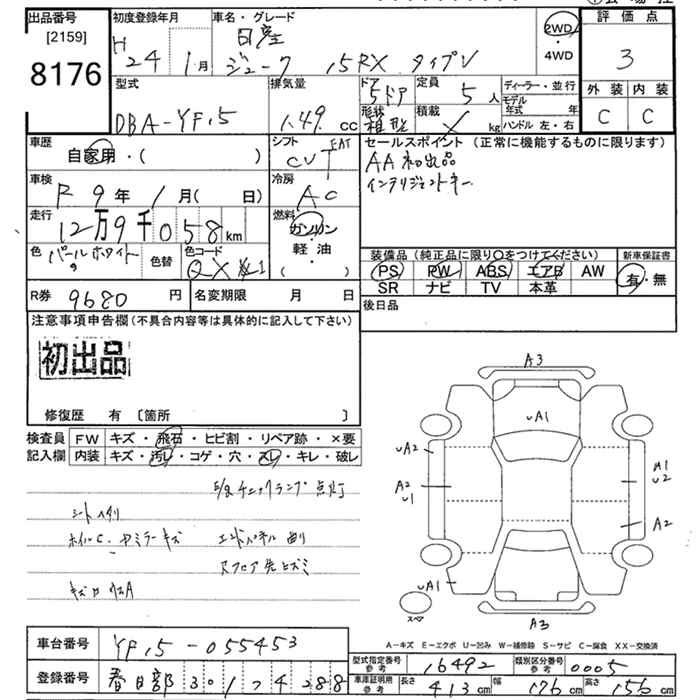 出品番号
[2159]
8176
初度登録年月
H
24年 1月
車名・グレード
日産
ジューク 15RX タイプV
2WD
・
4WD
評価点
3
外装 内装
C C
型式
DBA-YF15
排気量
1.49 cc
ドア
5ドア
形状
箱型
定員
5人
積載
kg
ディーラー・並行
モデル
年式 年
ハンドル 左・右
車歴
自家用・( )
シフト
FAT
CVT
セールスポイント (正常に機能するものに限ります)
AA初出品
インテリジェントキー
車検
R 9年 1月( 日)
冷房
AC
走行
12万9千058km
燃料
ガソリン
・
軽・油
( )
色
パールホワイト
色替
色コード
QX1
装備品 (純正品に限り〇をつけてください)
新車保証書
PS PW ABS エアB AW
SR ナビ TV 本革
有・無
R券 9680円
名変期限 月 日
後日品
注意事項申告欄(不具合内容等は具体的に記入して下さい)
初出品
修復歴 有 〔箇所 〕
検査員
記入欄
FW キズ・飛石・ヒビ割・リペア跡・×要
内装 キズ・汚レ・コゲ・穴・スレ・キレ・破レ
E/gチェックランプ点灯
シートスリ
ホイルC.ドアミラーキズ
エンドパネル曲り
スフロア先ヒズミ
A3
UA1
UA2
A2
U1
A1
U2
A2
UA1
A3
スペア
A-キズ E-エクボ U-凹み W-補修跡 S-サビ C-腐食 XX-交換済
車台番号 YF15-055453
登録番号 春日部 301 7 4288
型式指定番号
参考
16492
類別区分番号
参考
0005
車庫証明用
参考
長さ 413cm 幅 176cm 高さ 156cm